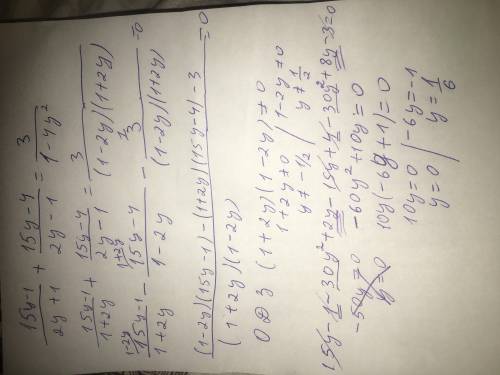 (15y-1)/(2y+1) + (15y-4)/(2y-1) = 3/(1-4y²)
(15y-1)/(1+2y) + (15y-4)/(2y-1) = 3/((1-2y)(1+2y))
1-2y 1+2y 1
(15y-1)/(1+2y) - (15y-4)/(1-2y) - 3/((1-2y)(1+2y)) = 0
((1-2y)(15y-1)-(1+2y)(15y-4)-3)/((1+2y)(1-2y)) = 0
ОДЗ (1+2y)(1-2y)≠0
1+2y≠0 / 1-2y≠0
y≠-1/2 y≠1/2
15y-1-30y²+2y-15y+4-30y²+8y-3=0
-50y=0 -60y²+10y=0
y=0 10y(-6y+1)=0
10y=0 / -6y=-1
y=0 y=1/6